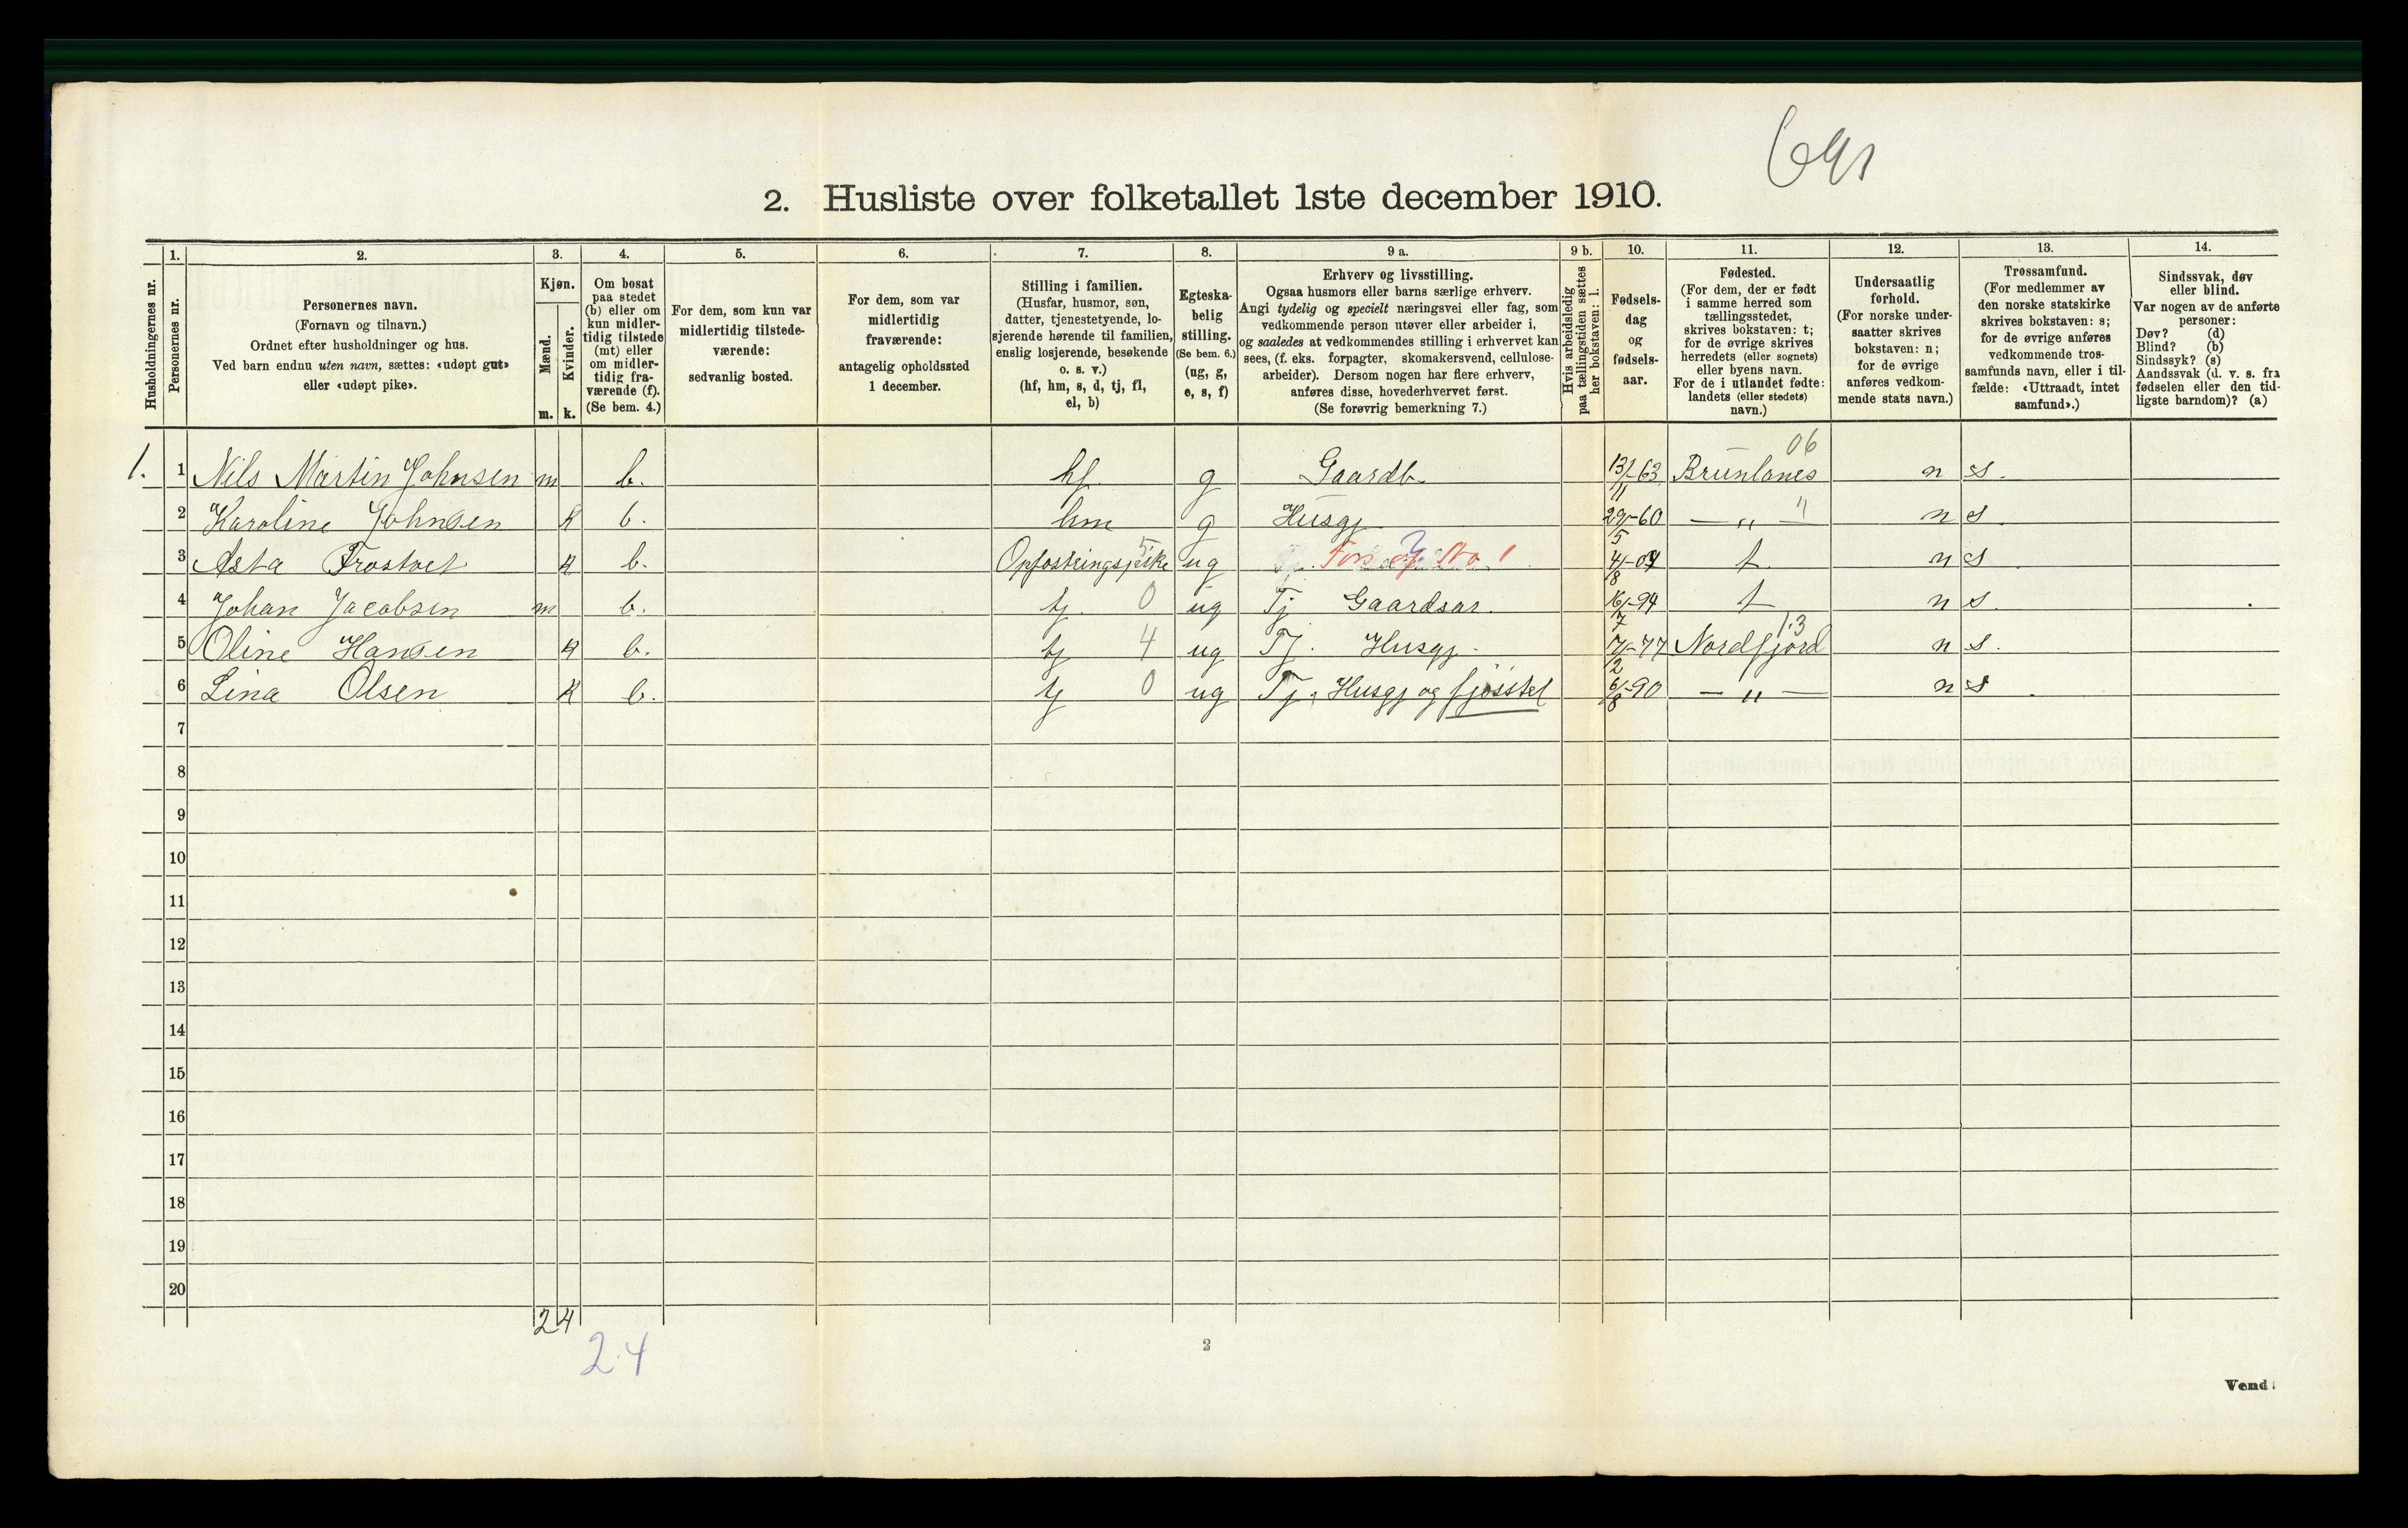 691
2. Husliste over folketallet 1ste december 1910.
Husholdningernes nr.
1.
Personernes nr.
2.
Personernes navn.
(Fornavn og tilnavn.)
Ordnet efter husholdninger og hus.
Ved barn endnu uten navn, sættes: «udøpt gut»
eller «udøpt pike».
3.
Kjøn.
Mænd.
Kvinder.
m.
k.
4.
Om bosat
paa stedet
(b) eller om
kun midler-
tidig tilstede
(mt) eller
om midler-
tidig fra-
værende (f).
(Se bem. 4.)
5.
For dem, som kun var
midlertidig tilstede-
værende:
sedvanlig bosted.
6.
For dem, som var
midlertidig
fraværende:
antagelig opholdssted
1 december.
7.
Stilling i familien.
(Husfar, husmor, søn,
datter, tjenestetyende, lo-
sjerende hørende til familien,
enslig losjerende, besøkende
o. s. v.)
(hf, hm, s, d, tj, fl,
el, b)
8.
Egteska-
belig
stilling.
(Se bem. 6.)
(ug, g,
e, s, f)
9 a.
Erhverv og livsstilling.
Ogsaa husmors eller barns særlige erhverv.
Angi tydelig og specielt næringsvei eller fag, som
vedkommende person utøver eller arbeider i,
og saaledes at vedkommendes stilling i erhvervet kan
sees, (f. eks. forpagter, skomakersvend, cellulose-
arbeider). Dersom nogen har flere erhverv,
anføres disse, hovederhvervet først.
(Se forøvrig bemerkning 7.)
9 b.
Hvis arbeidsledig
paa tællingstiden sættes
her bokstaven: l.
10.
Fødsels-
dag
og
fødsels-
aar.
11.
Fødested.
(For dem, der er født
i samme herred som
tællingsstedet,
skrives bokstaven: t;
for de øvrige skrives
herredets (eller sognets)
eller byens navn.
For de i utlandet fødte:
landets (eller stedets)
navn.)
12.
Undersaatlig
forhold.
(For norske under-
saatter skrives
bokstaven: n;
for de øvrige
anføres vedkom-
mende stats navn.)
13.
Trossamfund.
(For medlemmer av
den norske statskirke
skrives bokstaven: s;
for de øvrige anføres
vedkommende tros-
samfunds navn, eller i til-
fælde: «Uttraadt, intet
samfund».)
14.
Sindssvak, døv
eller blind.
Var nogen av de anførte
personer:
Døv? (d)
Blind? (b)
Sindssyk? (s)
Aandssvak (d. v. s. fra
fødselen eller den tid-
ligste barndom)? (a)
06
1. 1 Nils Martin Johnsen m b. hf. g Gaardb. 13/11-63 Brunlanes n s.
2 Karoline Johnsen k b. hm g Husgj. 29/5-60 — „ — " n s
3 Asta Frostvet k b. Opfostringspike 5 ug t. n s
4 Johan Jacobsen m b. tj. 0 ug Tj Gaardsar. 16/7-94 t n s.
13
5 Oline Hansen k b. tj 4 ug Tj. Husgj. 17/2-77 Nordfjord n s.
6 Lina Olsen k b. tj 0 ug Tj. Husgj og fjøsstel 6/8-90 — „ — n s
7
8
9
10
11
12
13
14
15
16
17
18
19
20
2 4
2 4
2
Vend!